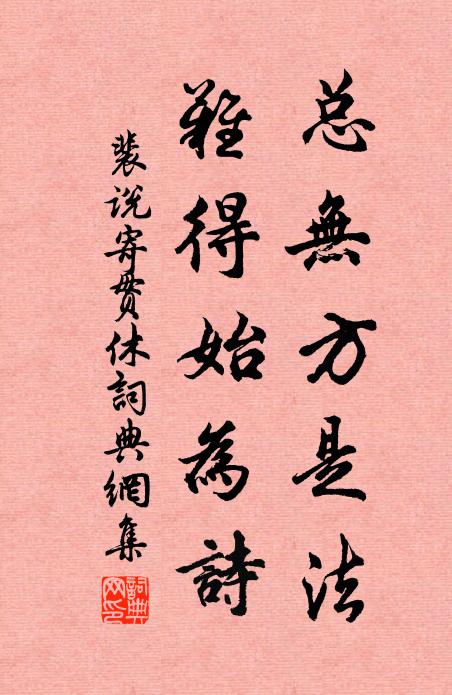 总無方是法
難得始為詩
裴説寄貫休詞典網集
詞典网印